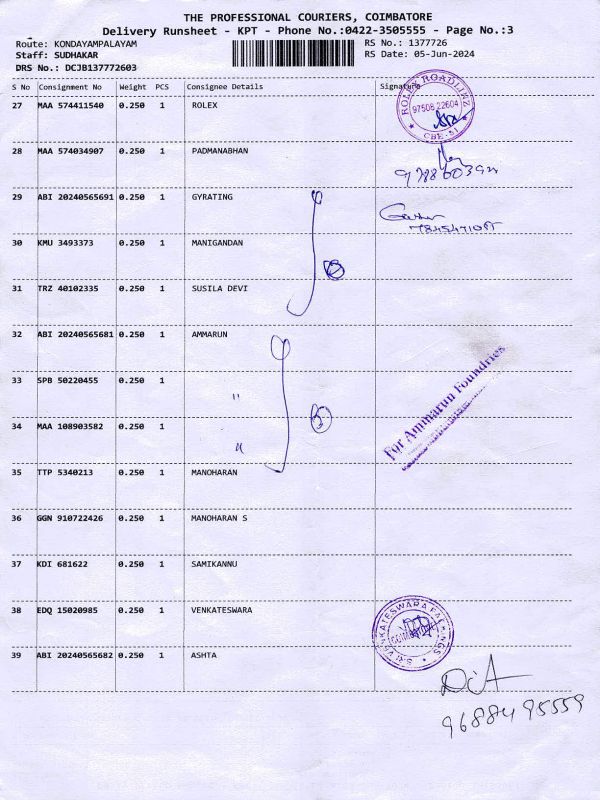 THE PROFESSIONAL COURIERS, COIMBATORE
Delivery Runsheet - KPT - Phone No.:0422-3505555 - Page No.:3
Route: KONDAYAMPALAYAM RS No.: 1377726
Staff: SUDHAKAR RS Date: 05-Jun-2024
DRS No.: DCJB137772603
S No Consignment No Weight PCS Consignee Details Signature
27 MAA 574411540 0.250 1 ROLEX
ROLEX ROADLINKZ
97508 22604
CBE-31
28 MAA 574034907 0.250 1 PADMANABHAN
29 ABI 20240565691 0.250 1 GYRATING
30 KMU 3493373 0.250 1 MANIGANDAN
31 TRZ 40102335 0.250 1 SUSILA DEVI
32 ABI 20240565681 0.250 1 AMMARUN
33 SPB 50220455 0.250 1 "
34 MAA 108903582 0.250 1 "
For Ammarun Foundries
35 TTP 5340213 0.250 1 MANOHARAN
36 GGN 910722426 0.250 1 MANOHARAN S
37 KDI 681622 0.250 1 SAMIKANNU
38 EDQ 15020985 0.250 1 VENKATESWARA
SRI VENKATESWARA PACKINGS
39 ABI 20240565682 0.250 1 ASHTA
9688495559